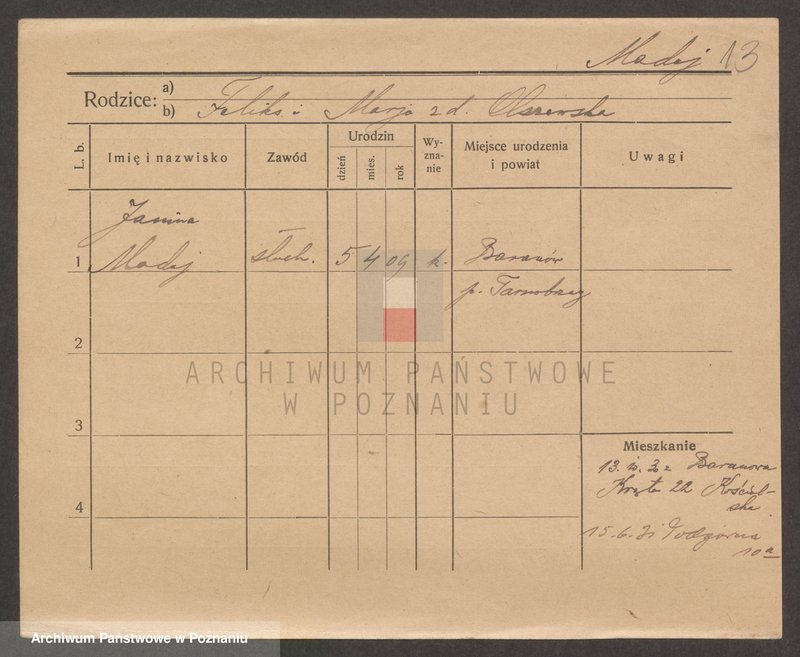 Madej 13
Rodzice: a)
b) Feliks i Marja z d. Olszewska
L. b.
Imię i nazwisko
Zawód
Urodzin
dzień
mies.
rok
Wy-
zna-
nie
Miejsce urodzenia
i powiat
Uwagi
Janina
1 Madej słuch. 5 4 09 k. Baranów
p. Tarnobrzeg
2
ARCHIWUM PAŃSTWOWE
W POZNANIU
3
Mieszkanie
13. z Baranowa
22 Kościel-
ska
4
15.6.31 Podgórna
10a
Archiwum Państwowe w Poznaniu